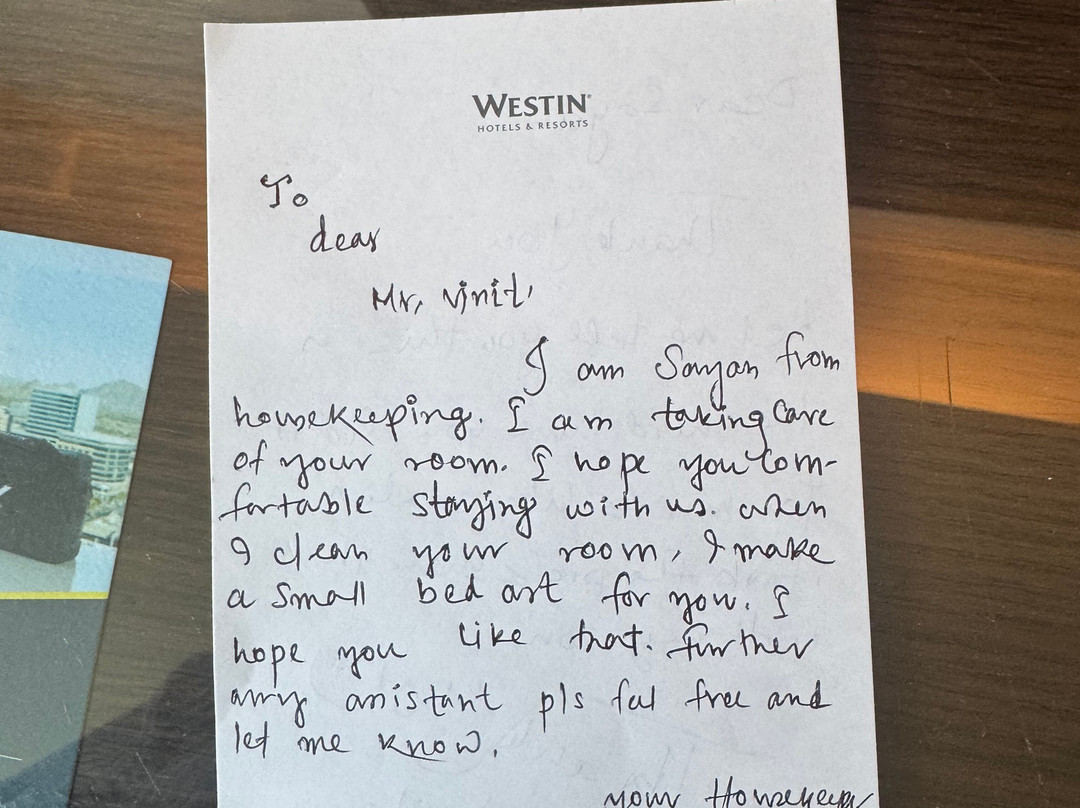 WESTIN
HOTELS & RESORTS
To
dear
Mr, Vinit,
I am Sayan from
housekeeping. I am taking care
of your room. I hope you com-
fortable staying with us. when
I clean your room, I make
a small bed art for you. I
hope you like that. further
any assistant pls feel free and
let me know.
your Housekeeper